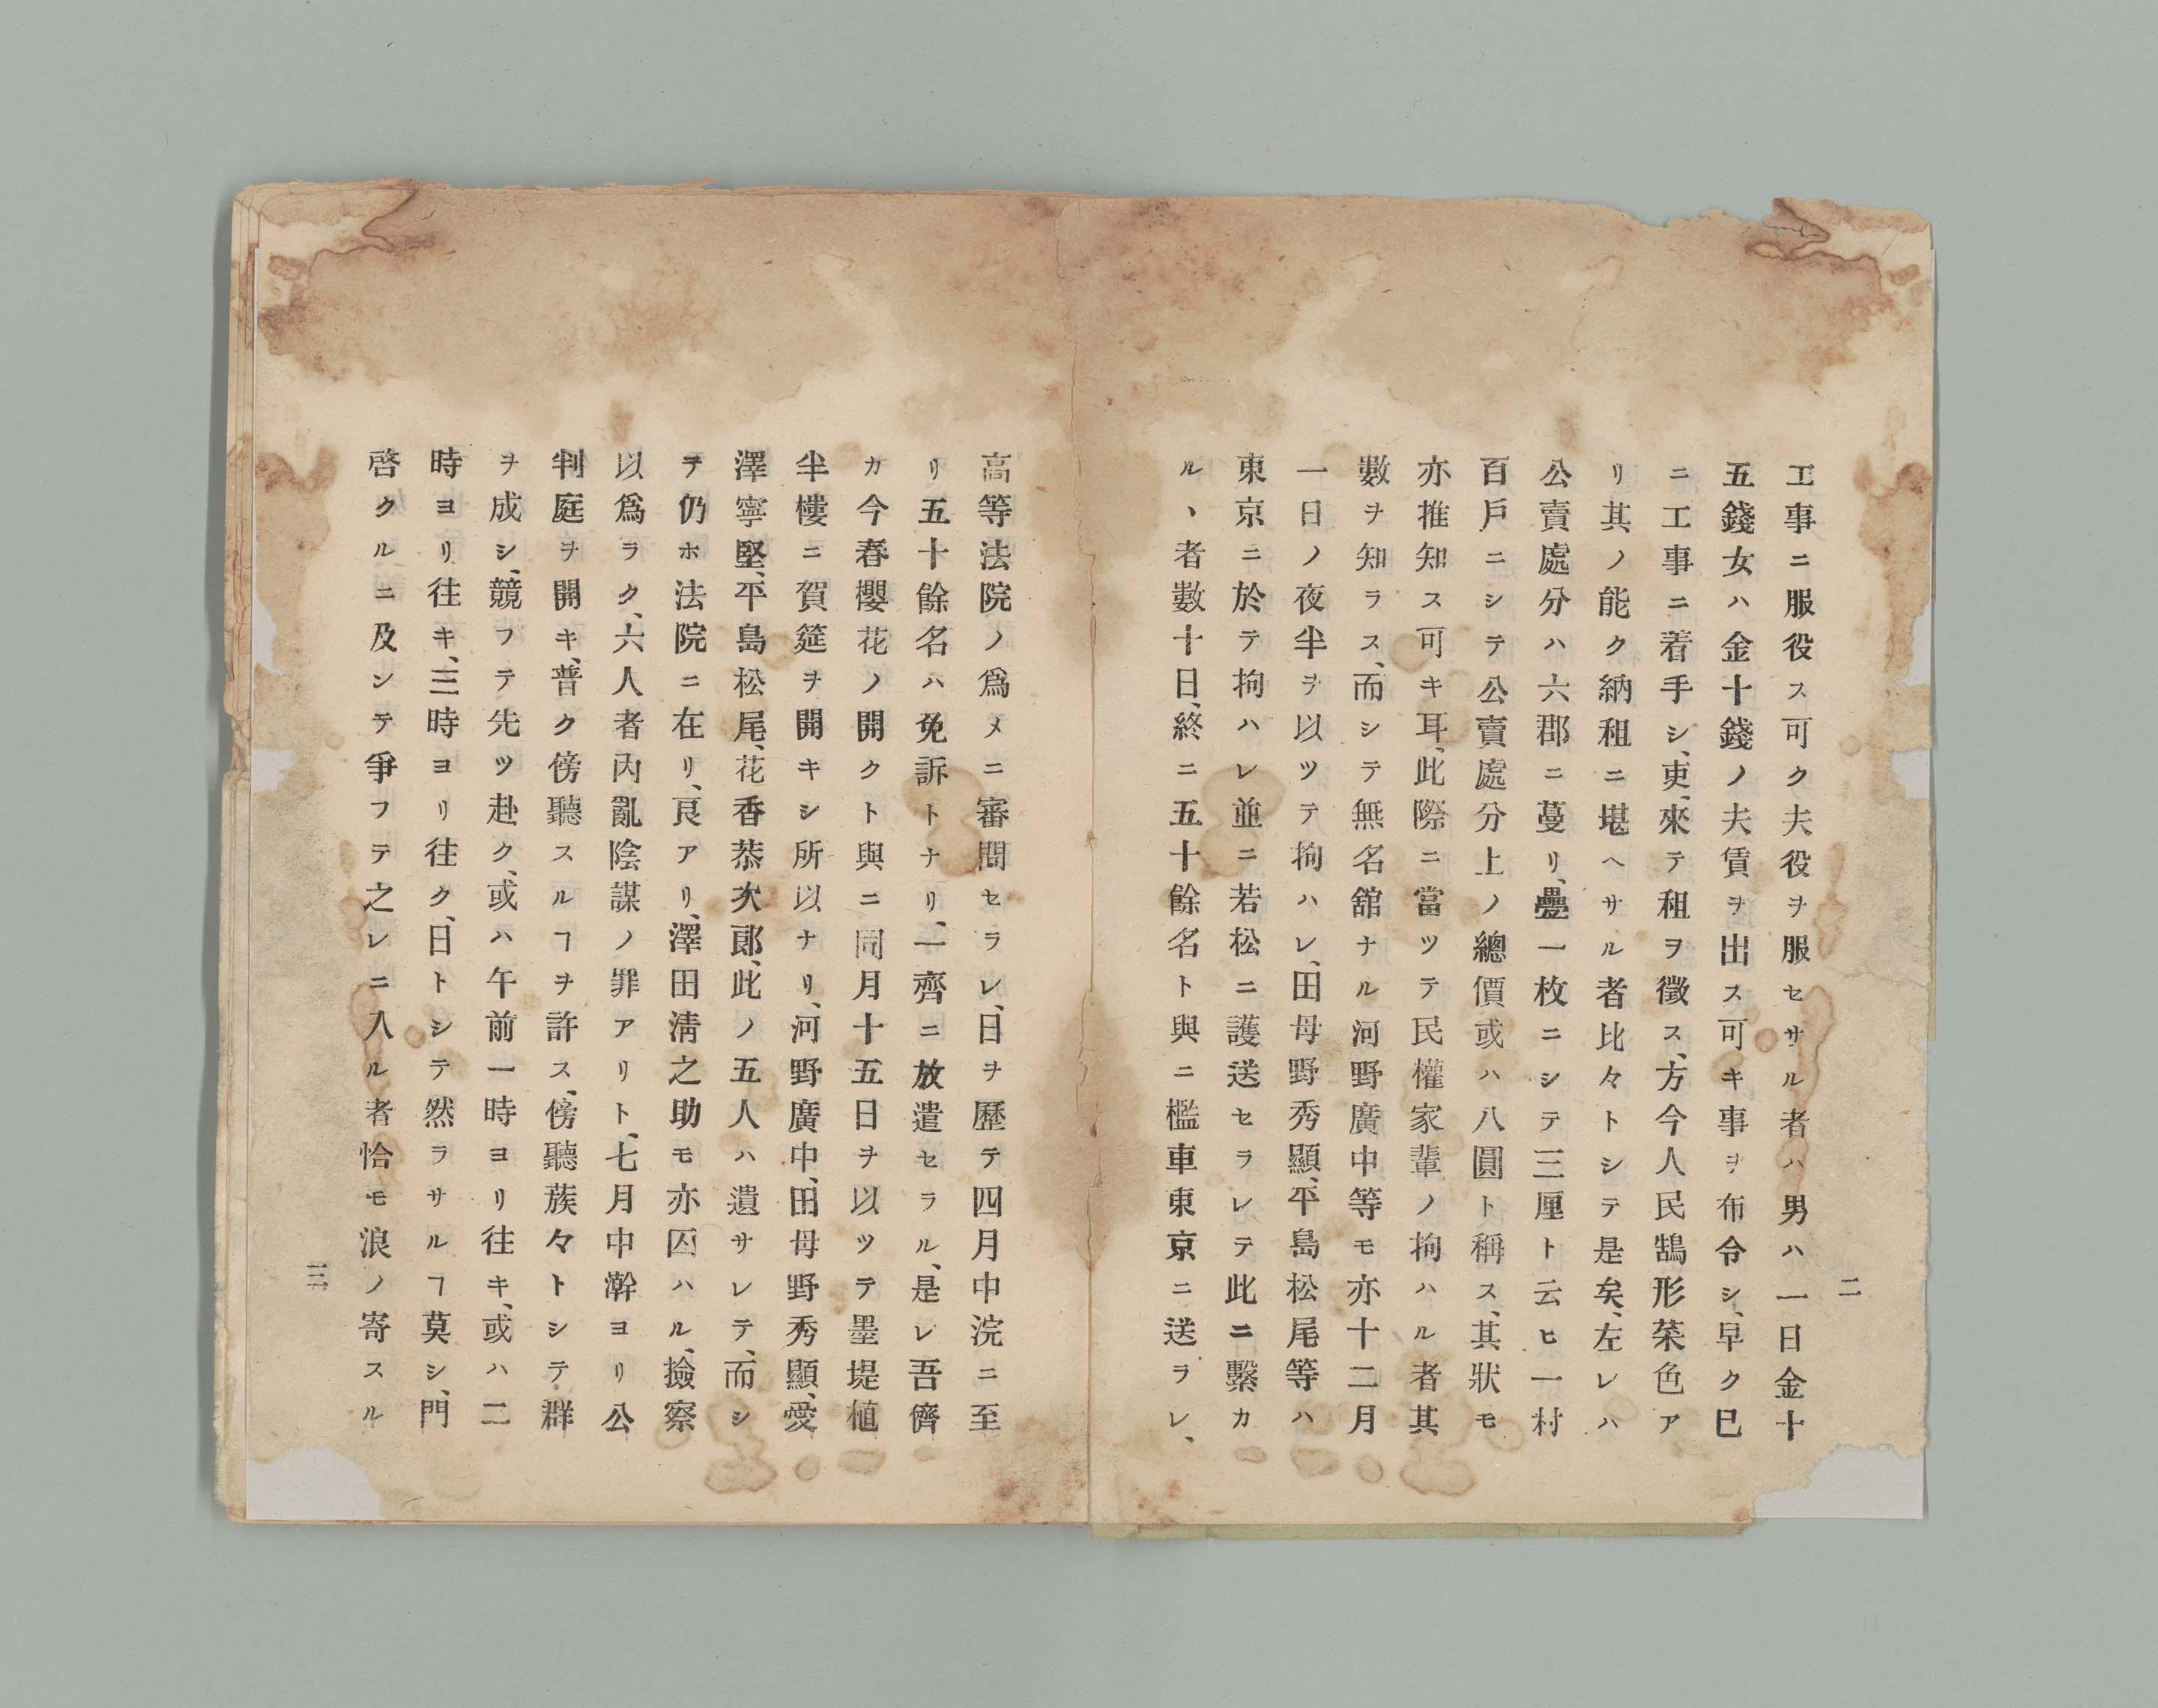 二
工事ニ服役ス可ク夫役ヲ服セサル者ハ男ハ一日金十
五錢女ハ金十錢ノ夫賃ヲ出ス可キ事ヲ布令シ、早ク已
ニ工事ニ着手シ、吏、來テ租ヲ徵ス、方今人民鵠形菜色ア
リ其ノ能ク納租ニ堪ヘサル者比々トシテ是矣、左レハ
公賣處分ハ六郡ニ蔓リ、疊一枚ニシテ三厘ト云ヒ一村
百戶ニシテ公賣處分上ノ總價或ハ八圓ト稱ス、其狀モ
亦推知ス可キ耳、此際ニ當ツテ民權家輩ノ拘ハル者其
數ヲ知ラス、而シテ無名舘ナル河野廣中等モ亦十二月
一日ノ夜半ヲ以ツテ拘ハレ、田母野秀顯、平島松尾等ハ
東京ニ於テ拘ハレ並ニ若松ニ護送セラレテ此ニ繫カ
ル、者數十日、終ニ五十餘名ト與ニ檻車東京ニ送ラレ、
高等法院ノ爲メニ審問セラレ、日ヲ歷テ四月中浣ニ至
リ五十餘名ハ免訴トナリ、一齊ニ放遣セラル、是レ吾儕
カ今春櫻花ノ開クト與ニ同月十五日ヲ以ツテ墨堤植
半樓ニ賀筵ヲ開キシ所以ナリ、河野廣中、田母野秀顯、愛
澤寧堅、平島松尾、花香恭次郎、此ノ五人ハ遺サレテ、而シ
テ仍ホ法院ニ在リ、艮アリ、澤田淸之助モ亦囚ハル、撿察
以爲ラク、六人者內亂陰謀ノ罪アリト、七月中澣ヨリ公
判庭ヲ開キ、普ク傍聽スルヿヲ許ス、傍聽蔟々トシテ群
ヲ成シ、競フテ先ツ赴ク、或ハ午前一時ヨリ往キ、或ハ二
時ヨリ往キ、三時ヨリ往ク、日トシテ然ラサルヿ莫シ、門
啓クルニ及シテ爭フテ之レニ入ル者恰モ浪ノ寄スル
三